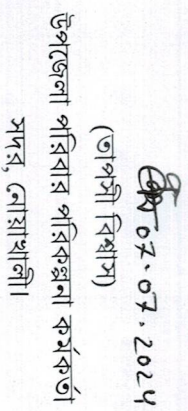 07.07.2024
(তাপসী বিশ্বাস)
উপজেলা পরিবার পরিকল্পনা কর্মকর্তা
সদর, নোয়াখালী।